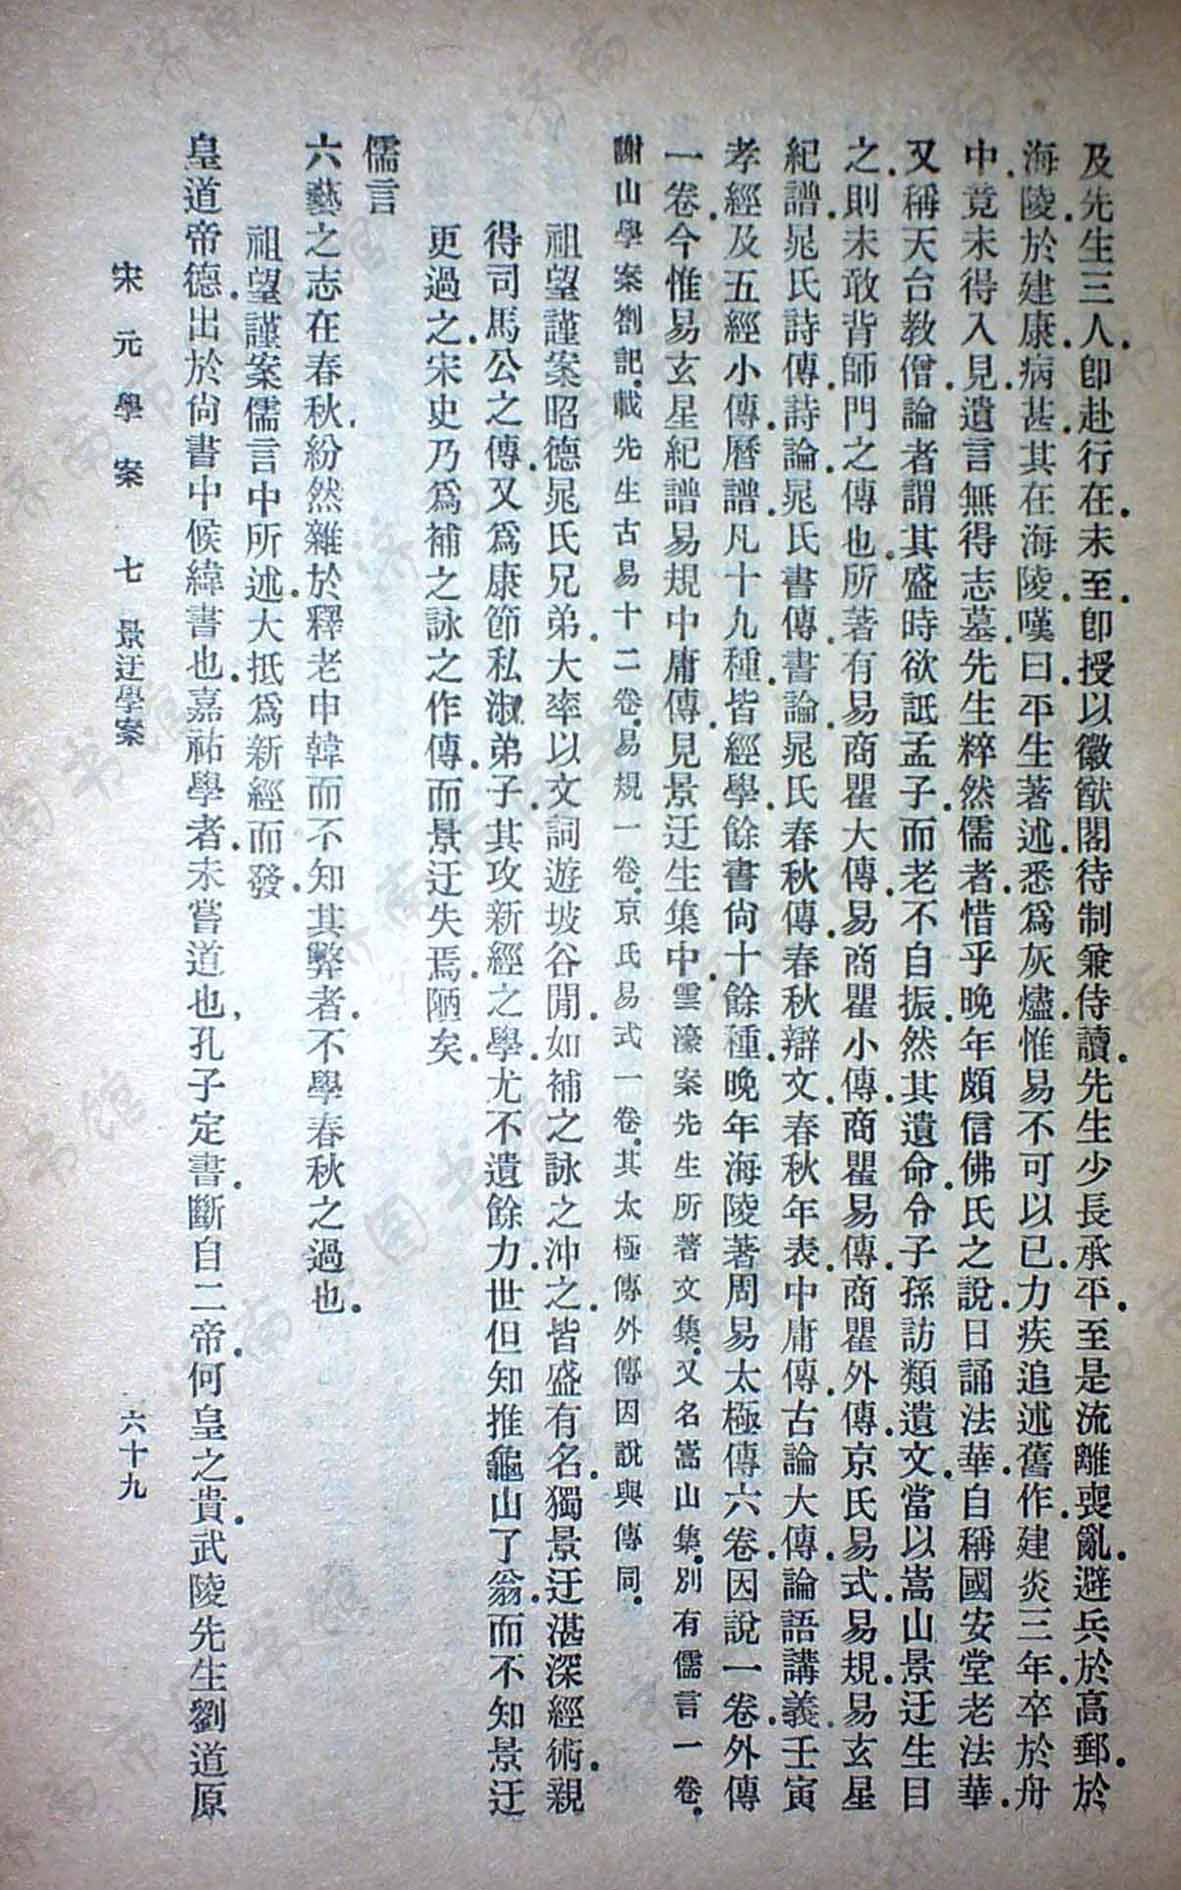 及先生三人.卽赴行在.未至.卽授以徽猷閣待制兼侍讀.先生少長承平.至是流離喪亂.避兵於高郵.於
海陵.於建康.病甚.其在海陵.嘆曰.平生著述.悉爲灰燼.惟易不可以已.力疾追述舊作.建炎三年.卒於舟
中.竟未得入見.遺言無得志墓.先生粹然儒者.惜乎晚年頗信佛氏之說.日誦法華.自稱國安堂老法華.
又稱天台教僧.論者謂其盛時欲詆孟子.而老不自振.然其遺命.令子孫訪類遺文.當以嵩山景迂生目
之.則未敢背師門之傳也.所著有易商瞿大傳.易商瞿小傳.商瞿易傳.商瞿外傳.京氏易式.易規.易玄星
紀譜.晁氏詩傳.詩論.晁氏書傳.書論.晁氏春秋傳.春秋辯文.春秋年表.中庸傳.古論大傳.論語講義.壬寅
孝經.及五經小傳.曆譜.凡十九種.皆經學.餘書尙十餘種.晚年海陵著周易太極傳六卷.因說一卷.外傳
一卷.今惟易玄星紀譜.易規.中庸傳.見景迂生集中.雲濠案先生所著文集.又名嵩山集.別有儒言一卷.
謝山學案劄記.載先生古易十二卷.易規一卷.京氏易式一卷.其太極傳外傳因說與傳同.
祖望謹案昭德晁氏兄弟.大率以文詞遊坡谷閒.如補之詠之沖之.皆盛有名.獨景迂湛深經術.親
得司馬公之傳.又爲康節私淑弟子.其攻新經之學.尤不遺餘力.世但知推龜山了翁.而不知景迂
更過之.宋史乃爲補之詠之作傳.而景迂失焉.陋矣.
儒言
六藝之志在春秋.紛然雜於釋老申韓而不知其弊者.不學春秋之過也.
祖望謹案儒言中所述.大抵爲新經而發.
皇道帝德.出於尙書中候緯書也.嘉祐學者.未嘗道也.孔子定書.斷自二帝.何皇之貴.武陵先生劉道原
宋元學案 七 景迂學案 六十九